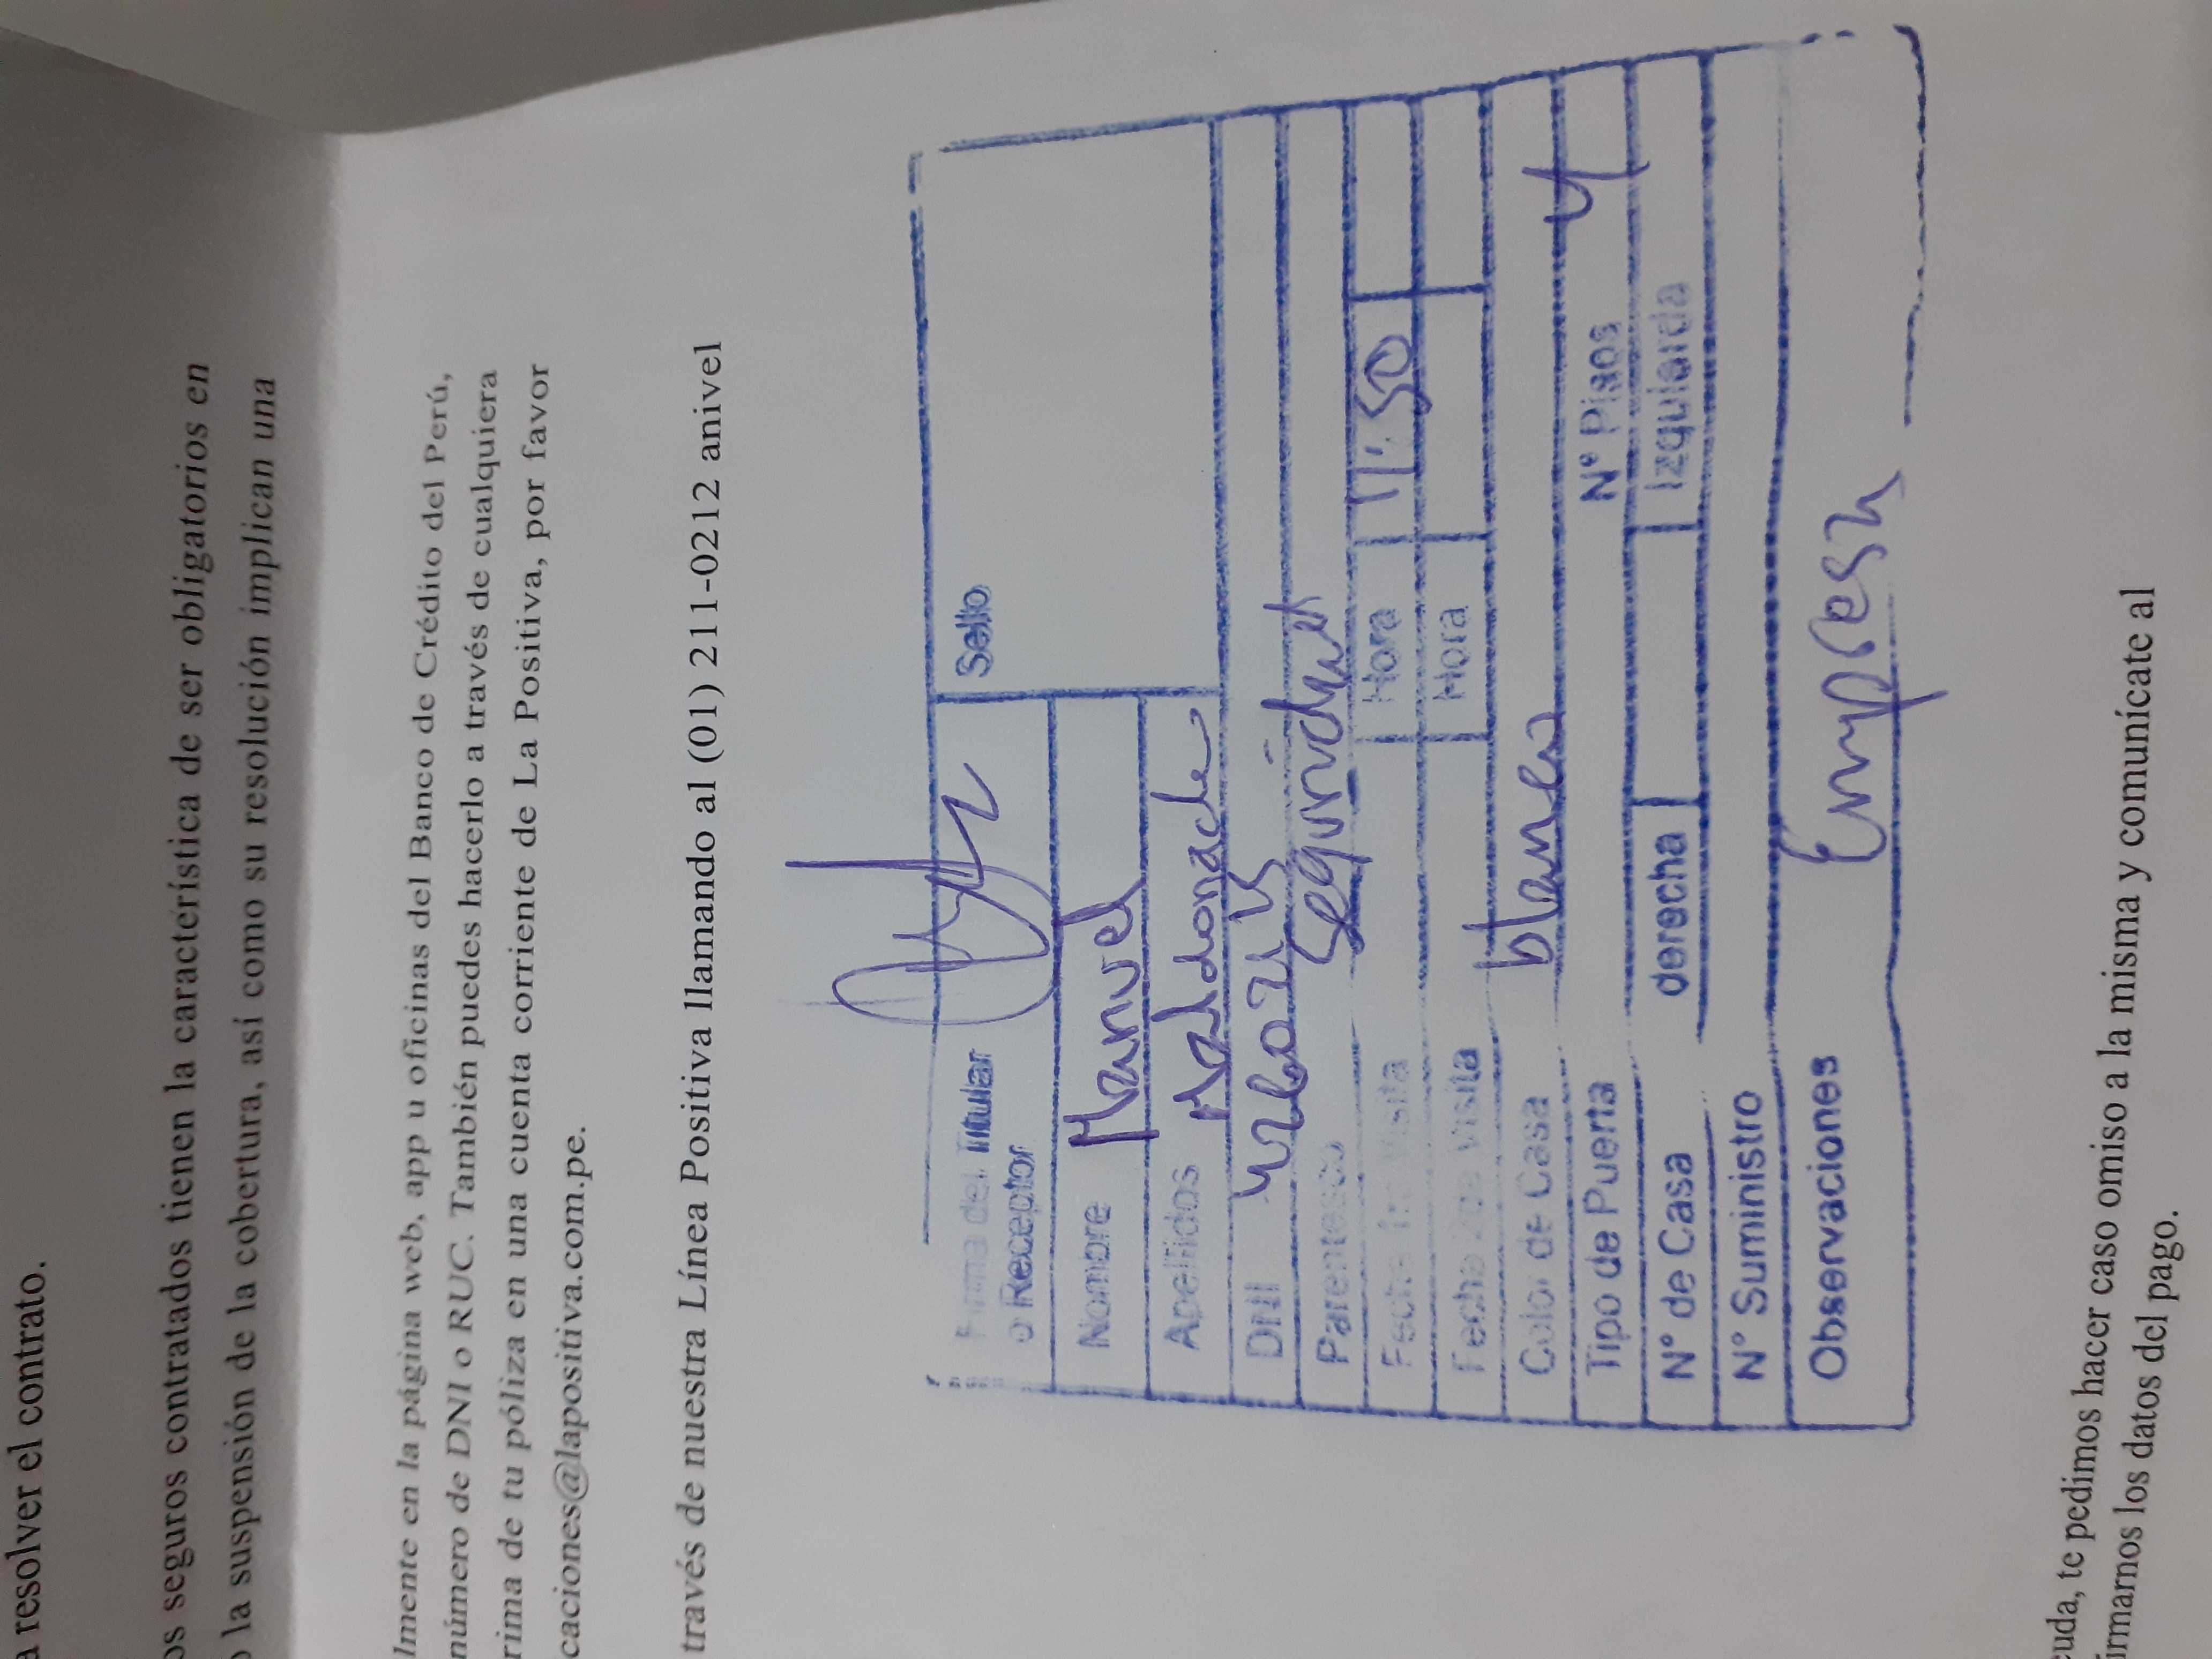 a resolver el contrato.
os seguros contratados tienen la característica de ser obligatorios en
o la suspensión de la cobertura, así como su resolución implican una
lmente en la página web, app u oficinas del Banco de Crédito del Perú,
número de DNI o RUC. También puedes hacerlo a través de cualquiera
rima de tu póliza en una cuenta corriente de La Positiva, por favor
caciones@lapositiva.com.pe.
través de nuestra Línea Positiva llamando al (01) 211-0212 anivel
Firma del Titular
o Receptor
Sello
Nombre Manuel
Apellidos Maldonado
DNI
Parentesco Seguridad
Fecha 1ra Visita Hora 11:50
Fecha 2da Visita Hora
Color de Casa blanco
Tipo de Puerta N° Pisos 4
N° de Casa derecha Izquierda
N° Suministro
Observaciones Empresa
euda, te pedimos hacer caso omiso a la misma y comunícate al
irmarnos los datos del pago.